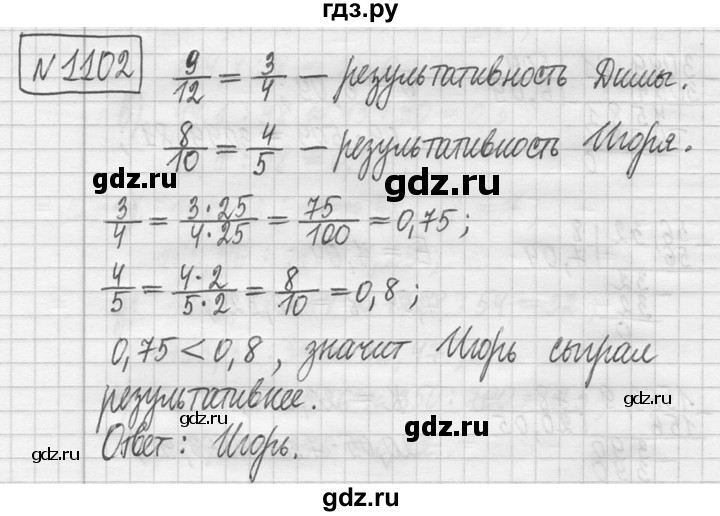 гдз.ру
№1102 9/12 = 3/4 — результативность Димы.
8/10 = 4/5 — результативность Игоря.
gdz.ru gdz.ru
3/4 = 3·25/4·25 = 75/100 = 0,75;
4/5 = 4·2/5·2 = 8/10 = 0,8;
0,75 < 0,8, значит Игорь сыграл
результативнее.
gdz.ru gdz.ru gdz.ru gdz.ru
Ответ: Игорь.
gdz.ru